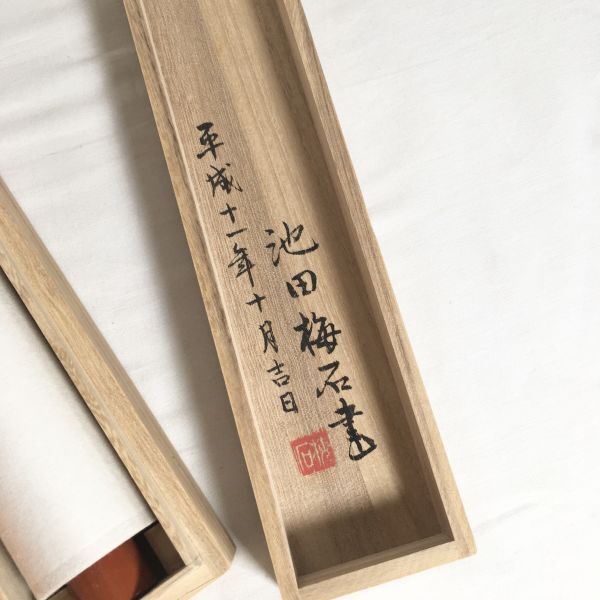 池田梅石書
平成十一年十月吉日
梅石